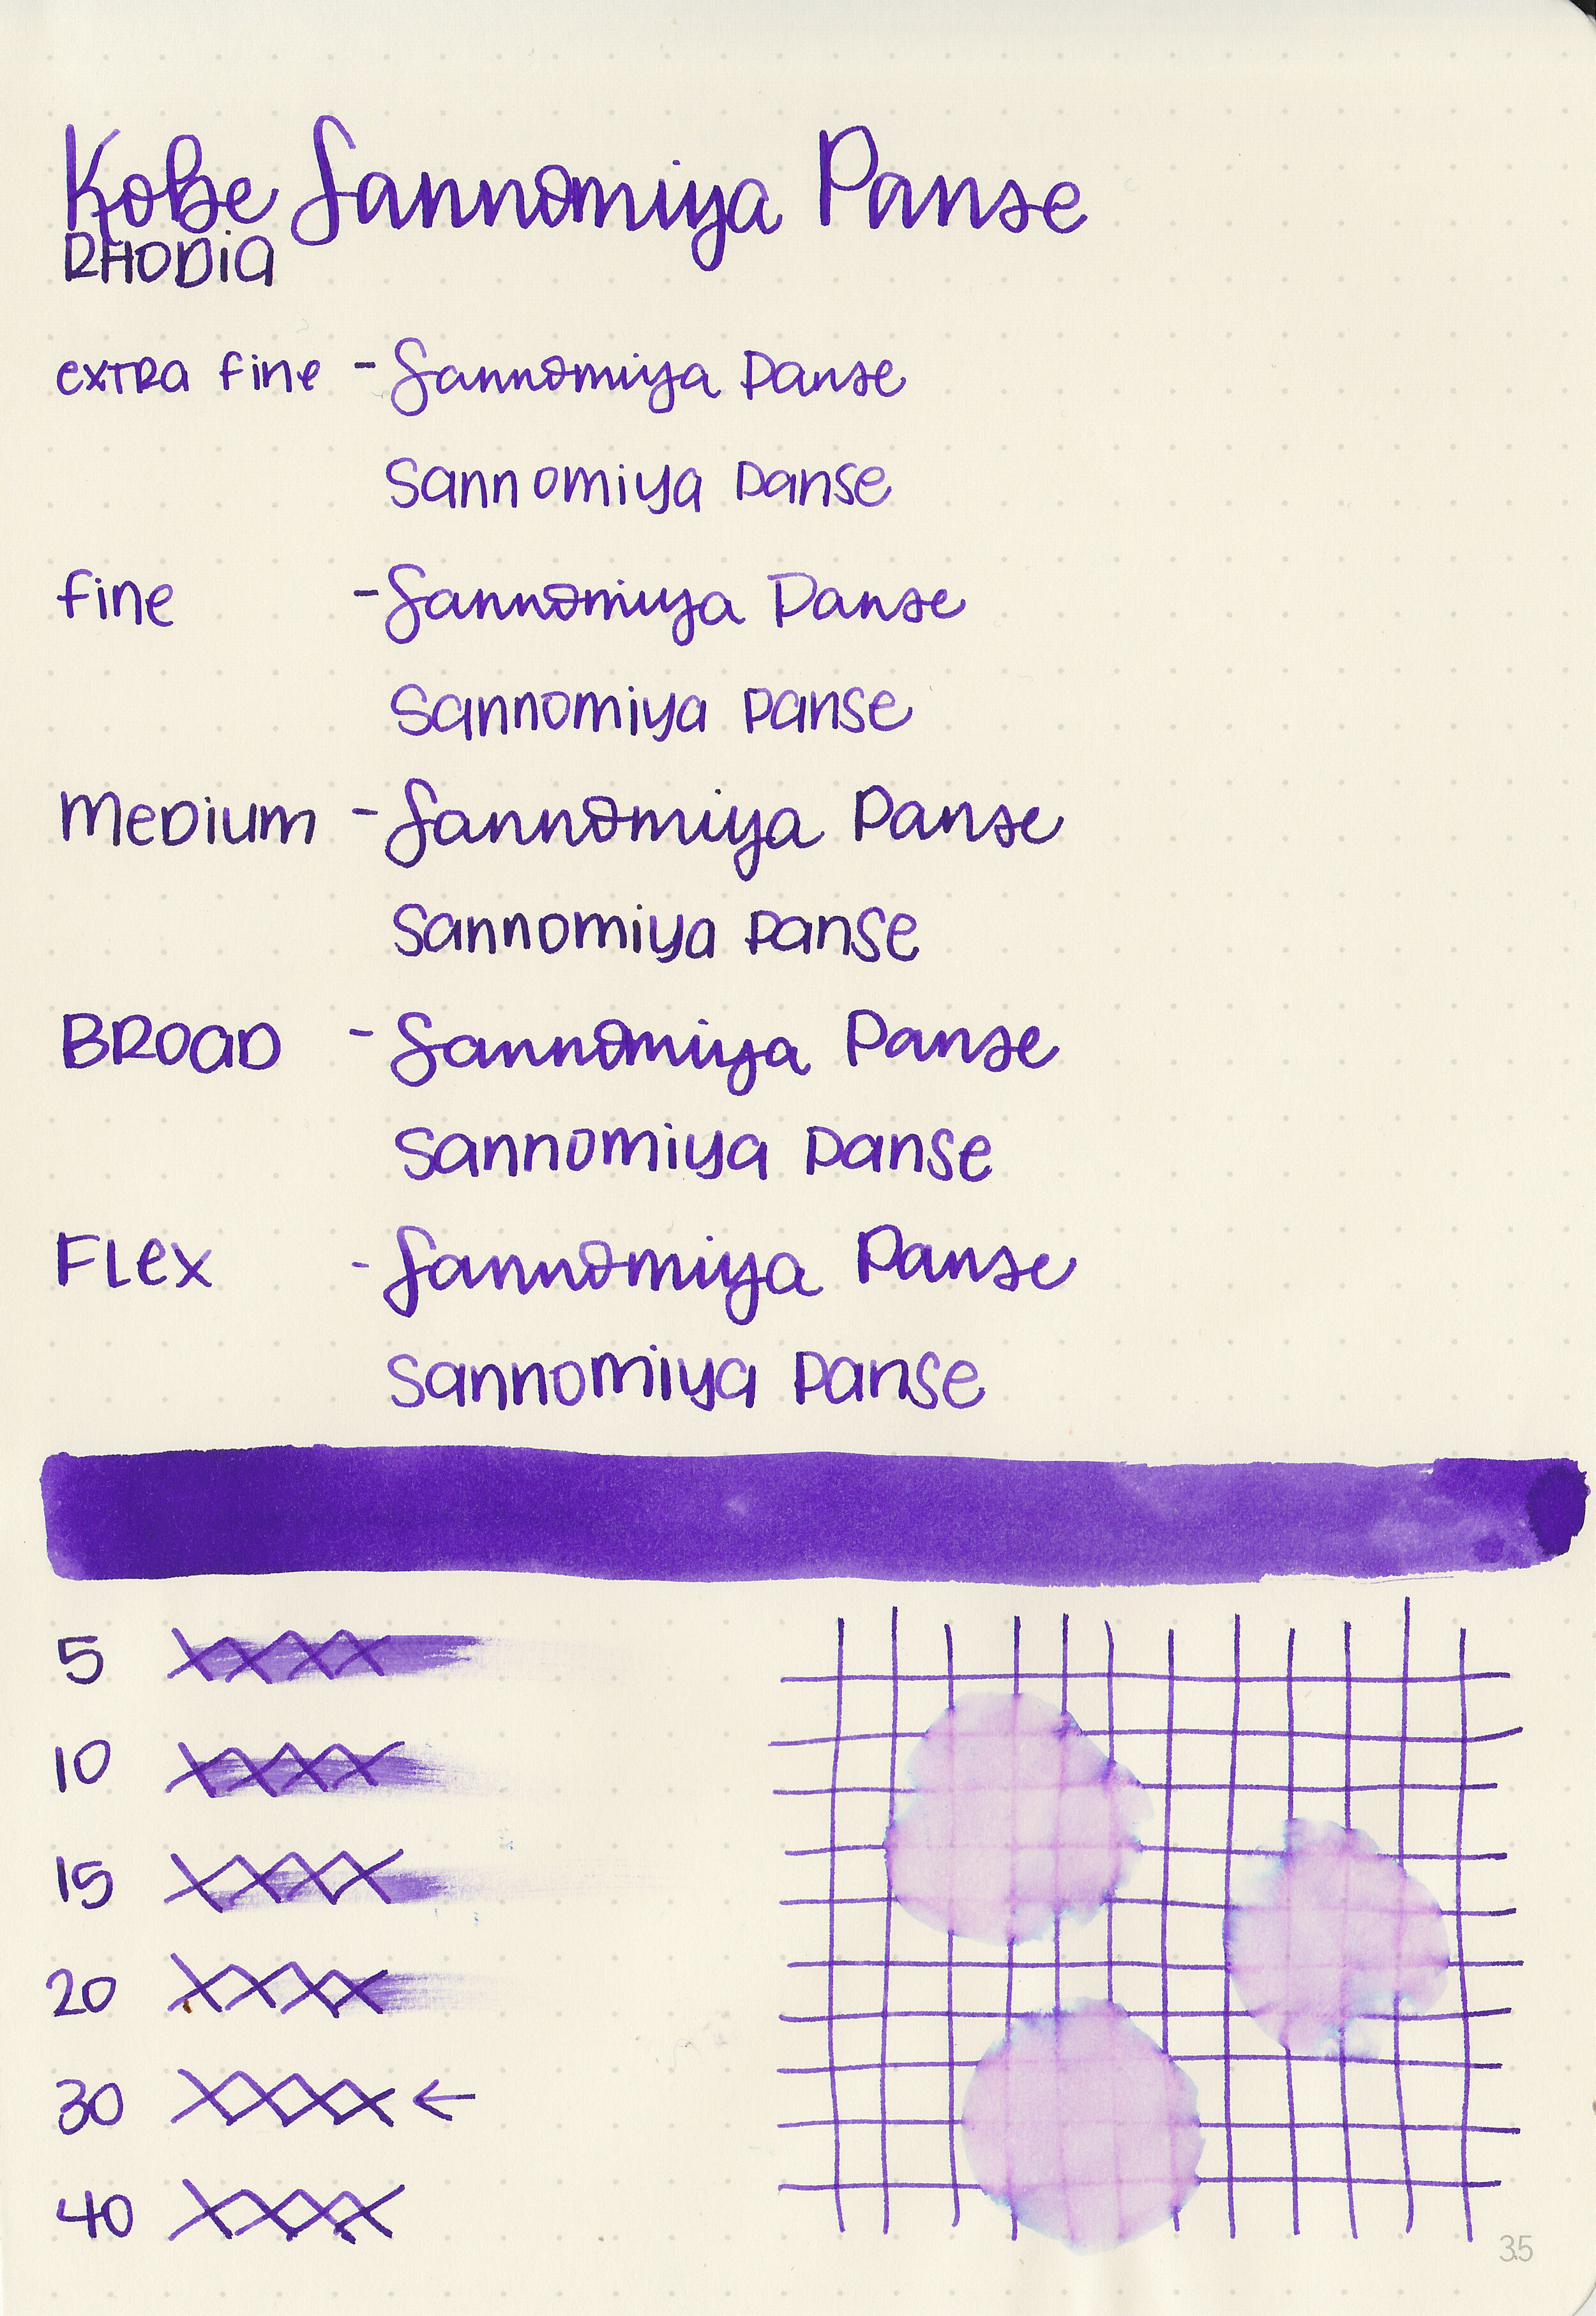 Kobe Sannomiya Panse
RHODIA
extra fine - Sannomiya Panse
Sannomiya Panse
fine - Sannomiya Panse
Sannomiya Panse
Medium - Sannomiya Panse
Sannomiya Panse
Broad - Sannomiya Panse
Sannomiya Panse
Flex - Sannomiya Panse
Sannomiya Panse
5 XXXX
10 XXXX
15 XXXX
20 XXXX
30 XXXX ←
40 XXXX
35